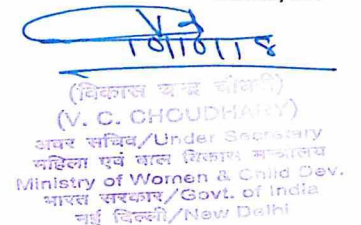 10/10/18
(विकास चन्द्र चौधरी)
(V. C. CHOUDHARY)
अवर सचिव/Under Secretary
महिला एवं बाल विकास मन्त्रालय
Ministry of Women & Child Dev.
भारत सरकार/Govt. of India
नई दिल्ली/New Delhi